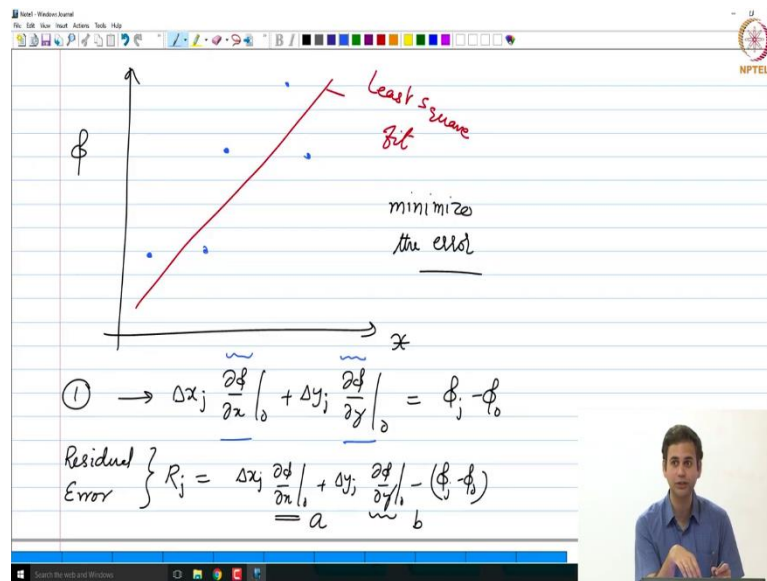 Note1 - Windows Journal
File Edit View Insert Actions Tools Help
B I
NPTEL
Least square
fit
ϕ
minimize
the error
x
① → Δxj ∂ϕ/∂x|₀ + Δyj ∂ϕ/∂y|₀ = ϕj - ϕ₀
Residual
Error } Rj = Δxj ∂ϕ/∂x|₀ + Δyj ∂ϕ/∂y|₀ - (ϕj - ϕ₀)
a b
Search the web and Windows